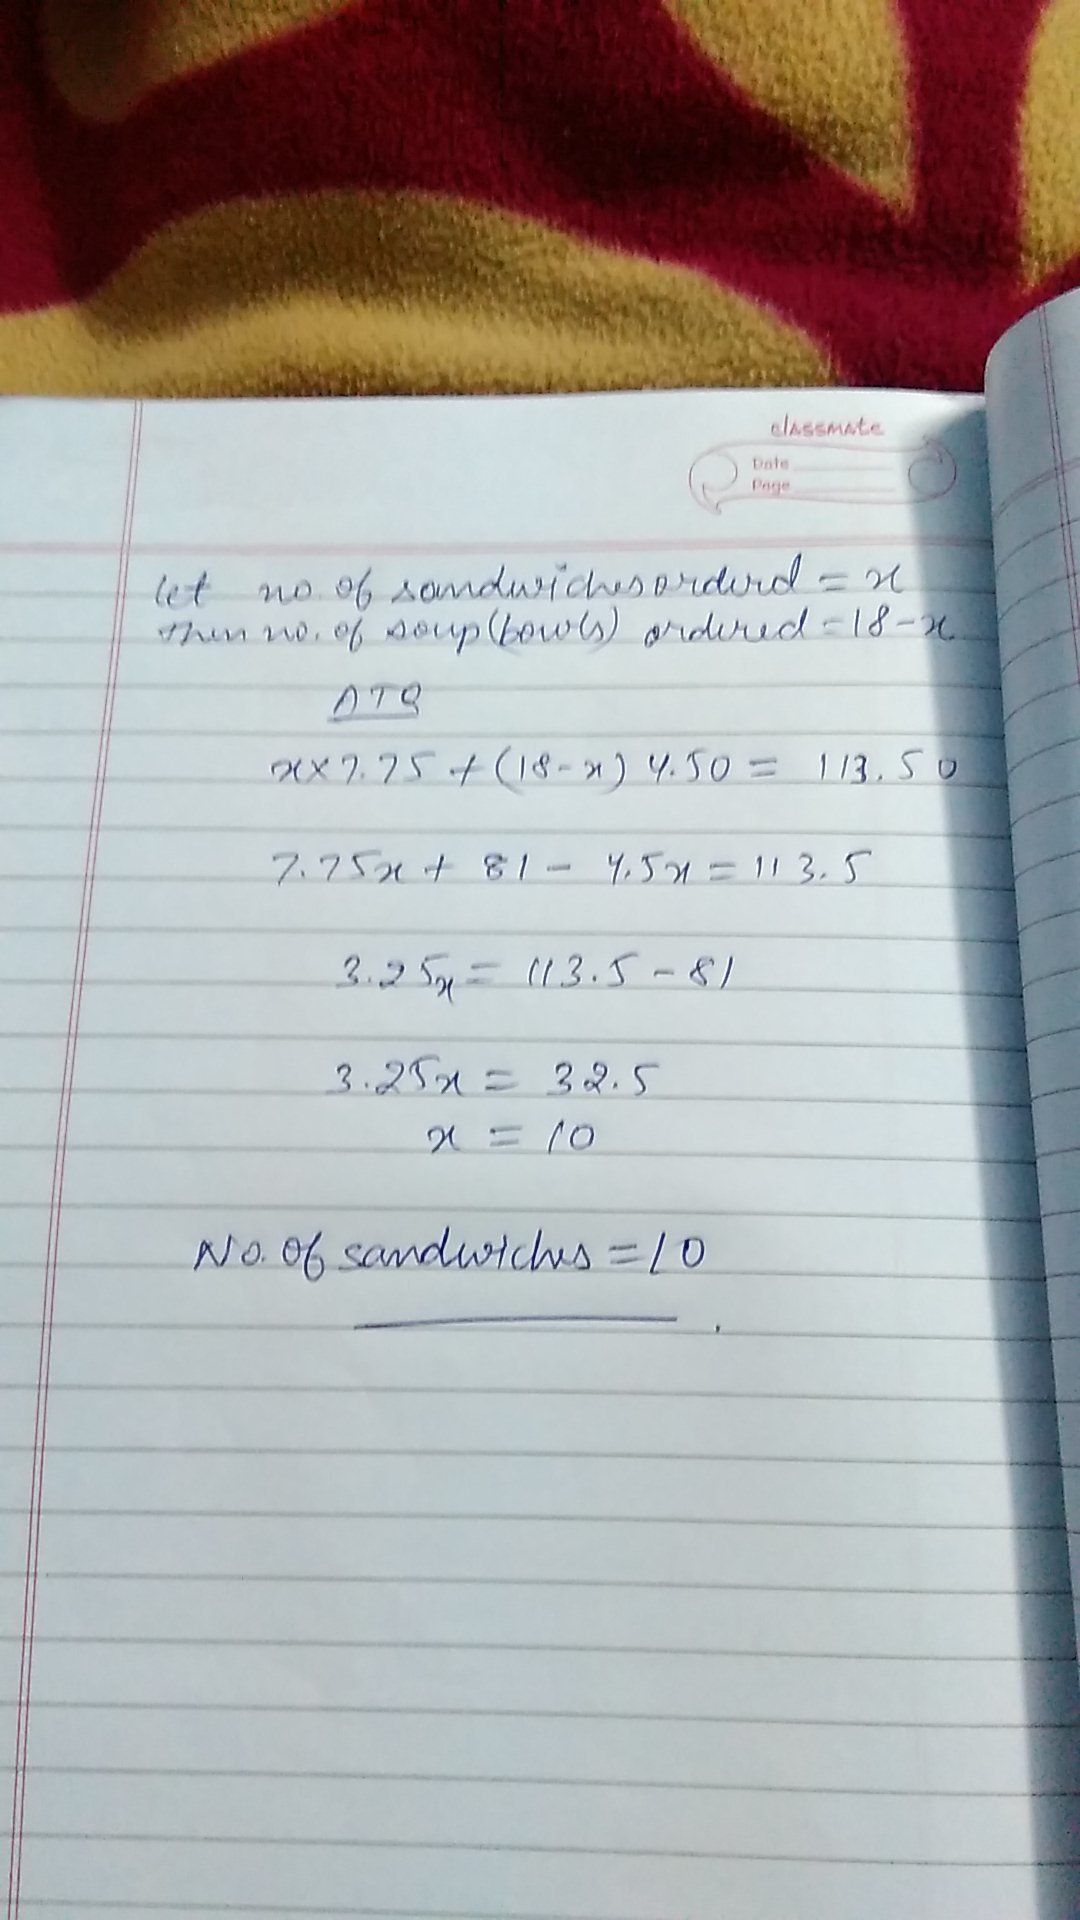 classmate
Date
Page
let no. of sandwiches orderd = x
then no. of soup (bowls) ordered = 18 - x
ATQ
x × 7.75 + (18 - x) 4.50 = 113.50
7.75x + 81 - 4.5x = 113.5
3.25x = 113.5 - 81
3.25x = 32.5
x = 10
No. of sandwiches = 10